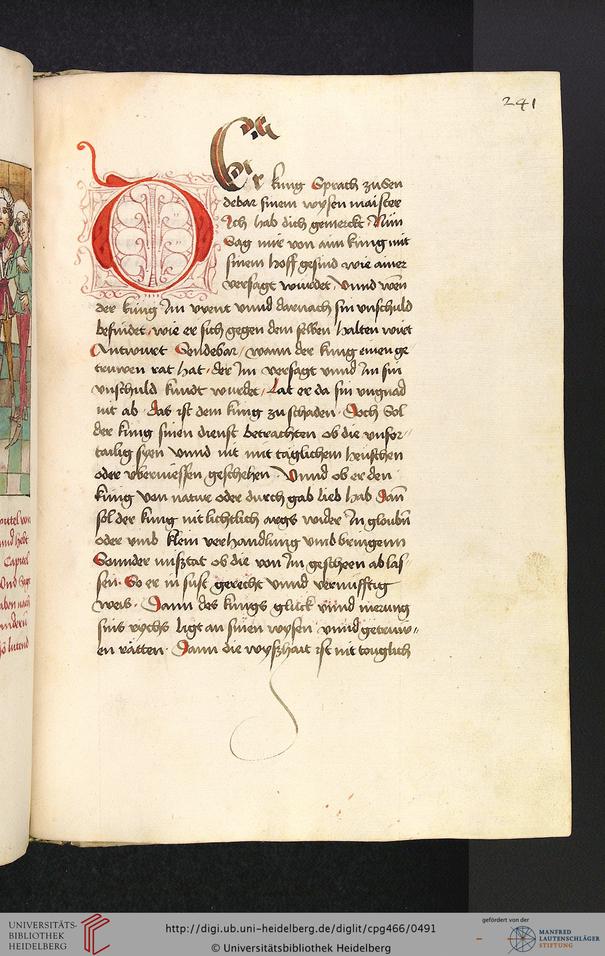 241
Der kúng Sprach zu Sen
debar sinem wysen maister
Ich hab dich gemerckt Nun
Sag mir von aim kúng mit
sinem hoff gesind wie ainer
versagt wurdet vnnd wen
der kúng Im vrent vnnd darnach sin vnschuld
befindet wie er sich gegen dem selben halten wirt
Antwurt Sendebar wann der kúng einen ge
truwen rat hat der Im versagt vnnd Im sin
vnschuld kundt wurdet Lat er da sin vngnad
nit ab das ist dem kúng zu schaden Doch Sol
der kúng sinen dienst betrachten ob die vnfor
tailig syen vnnd nit mit täglichem heuschen
oder vbermessen geschehen Vnnd ob er den
kúng von nature oder durch gab lieb hab dan
sol der kúng nit lichtlich args wider In glouben
oder vmb klein verhandlung vmb bringenn
Sonnder misztat ob die von Im gescheen ablas
sen So er in sust gerecht vnnd vernúfftig
weis Dann des kúngs glúck vnnd merung
sins rychs ligt an sinen wysen vnnd getruw
en rätten Dann die wyszhait ist nit touglich
ontel von
nd hebt
Capitel
Vnd sagt
aben nach
andern
so lutend
UNIVERSITÄTS-
BIBLIOTHEK
HEIDELBERG
http://digi.ub.uni-heidelberg.de/diglit/cpg466/0491
© Universitätsbibliothek Heidelberg
gefördert von der
MANFRED
LAUTENSCHLÄGER
STIFTUNG